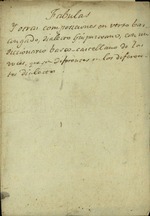 Fabulas
Y otras composiciones en verso bas-
congado, dialecto guipuzcoano, con un
diccionario basco-castellano de las
voces, que son diferentes en los diferen-
tes dialectos